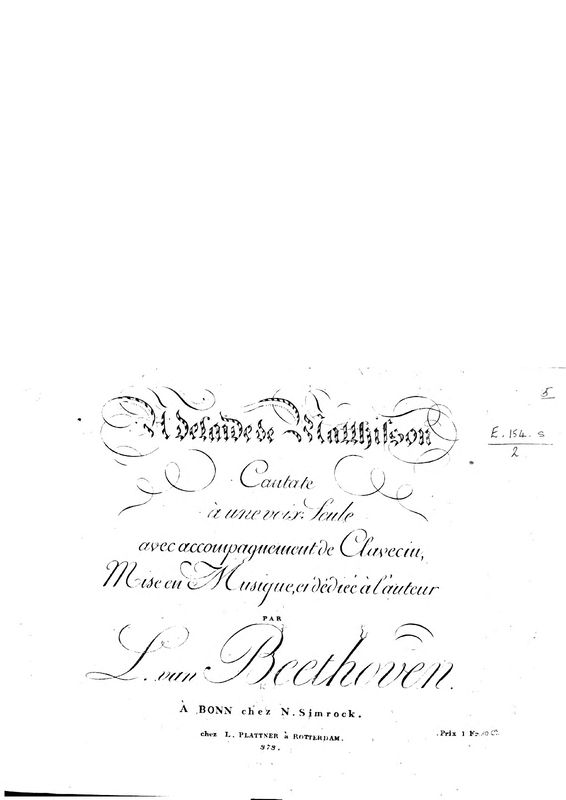 5
E. 154. s
2
Adelaide de Matthisson
Cantate
à une voix Seule
avec accompagnement de Clavecin,
Mise en Musique, et dédiée à l'auteur
PAR
L. van Beethoven.
À BONN chez N. Simrock.
chez L. PLATTNER à ROTTERDAM.
Prix 1 Fr.